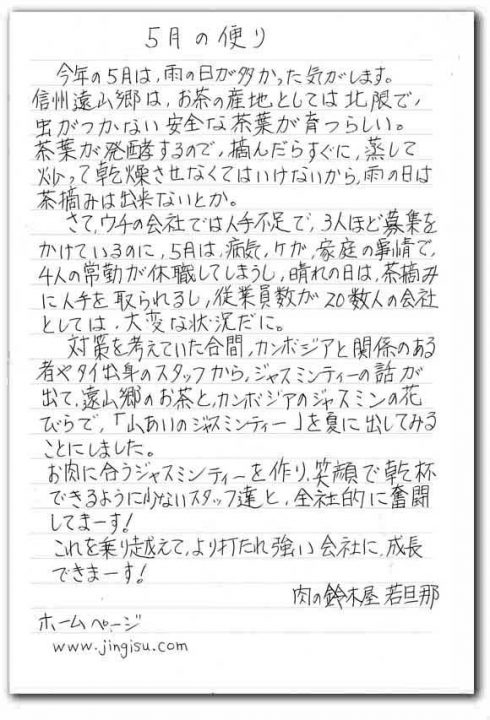 5月の便り
今年の5月は，雨の日が多かった気がします。
信州遠山郷は，お茶の産地としては北限で，
虫がつかない安全な茶葉が育つらしい。
茶葉が発酵するので，摘んだらすぐに，蒸して
炒って乾燥させなくてはいけないから，雨の日は
茶摘みは出来ないとか。
さて，ウチの会社では人手不足で，3人ほど募集を
かけているのに，5月は，病気，ケガ，家庭の事情で，
4人の常勤が休職してしまうし，晴れの日は，茶摘み
に人手を取られるし，従業員数が20数人の会社
としては，大変な状況だに。
対策を考えていた合間，カンボジアと関係のある
者やタイ出身のスタッフから，ジャスミンティーの話が
出て，遠山郷のお茶と，カンボジアのジャスミンの花
びらで，「山あいのジャスミンティー」を夏に出してみる
ことにしました。
お肉に合うジャスミンティーを作り，笑顔で乾杯
できるように少ないスタッフ達と，全社的に奮闘
してまーす！
これを乗り越えて，より打たれ強い会社に，成長
できまーす！
肉の鈴木屋 若旦那
ホームページ
www.jingisu.com